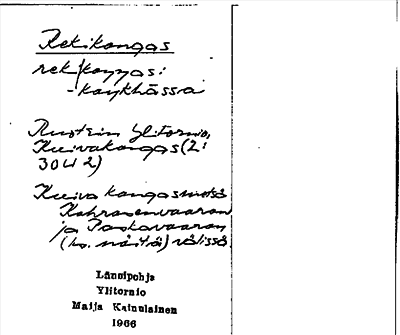 Rekikangas
rek/kaŋŋas:
-kaŋkhássa
Ruotsin Ylitornio,
Kuivakangas (2:
30 U 2)
Kuiva kangasmetsä
Kohrasenvaaran
ja Paskavaaran
(ks. näitä) välissä.
Länsipohja
Ylitornio
Maija Kainulainen
1966